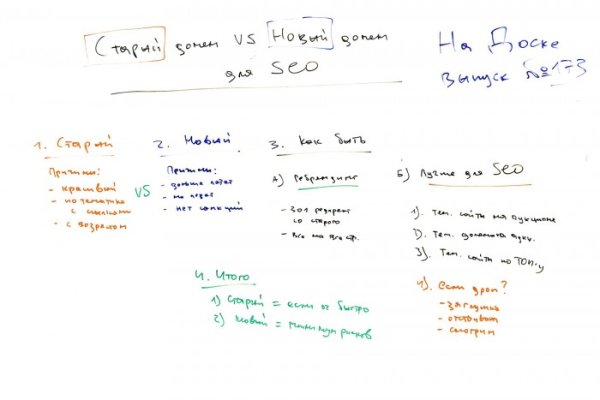 Старый домен VS Новый домен
для SEO
На Доске
выпуск №173
1. Старый
Причины:
- красивый
- по тематике
с ссылками
- с возрастом
VS
2. Новый
Причины:
- дольше
- нет санкций
3. Как быть
А) Ребрендинг
- 301 редирект
со старого
- все на все стр.
Б) Лучше для SEO
1). Тем. сайты на аукционе
2). Тем. домены аукц.
3). Тем. сайты по ТОП-у
4). если дроп?
- заглушка
- отстаивать
- смотрим
4. Итого
1) Старый = если оч быстро
2) Новый = минимум рисков